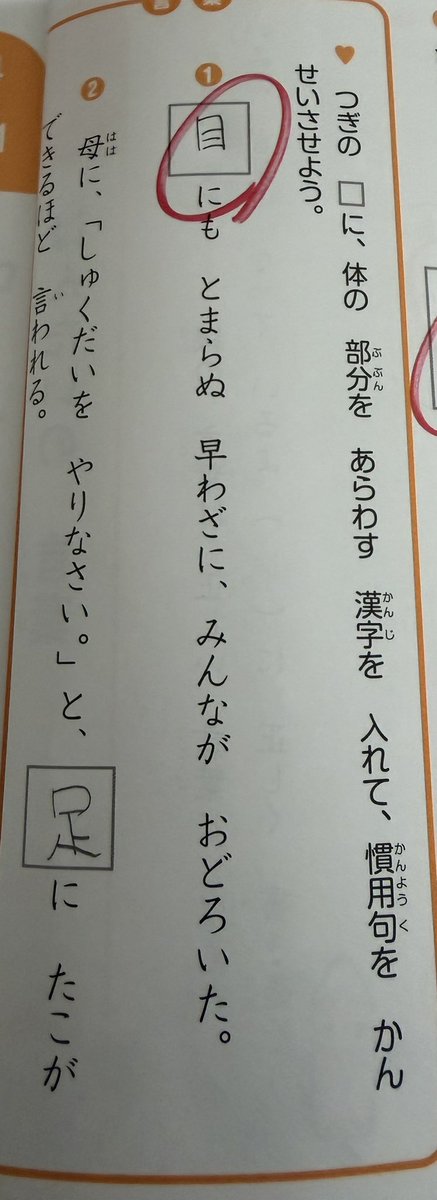 言葉
♥ つぎの □に、体の 部分を あらわす 漢字を 入れて、慣用句を かん
ぶぶん
かんじ
かんようく
せいさせよう。
❶ 目にも とまらぬ 早わざに、みんなが おどろいた。
❷ 母に、「しゅくだいを やりなさい。」と、足に たこが
はは
できるほど 言われる。
い